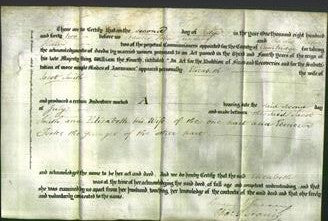 These are to Certify that on the second day of July in the year One thousand eight hundred
and forty before us
two of the perpetual Commissioners appointed for the County of Cambridge for taking
the acknowledgments of deeds by married women pursuant to an Act passed in the Third and Fourth years of the reign of
His late Majesty King William the Fourth intituled "An Act for the Abolition of Fines and Recoveries and for the Substi-
tution of more simple Modes of Assurance" appeared personally Elizabeth
Smith
and produced a certain Indenture marked A bearing date the said second day
of July and made between the said
Smith and Elizabeth his Wife of the one part and
of the other part
and acknowledged the same to be her act and deed. And we do hereby Certify that the said Elizabeth
was at the time of her acknowledging the said deed, of full age and competent understanding, and that
she was examined by us apart from her husband, touching her knowledge of the contents of the said deed, and that she freely
and voluntarily consented to the same.